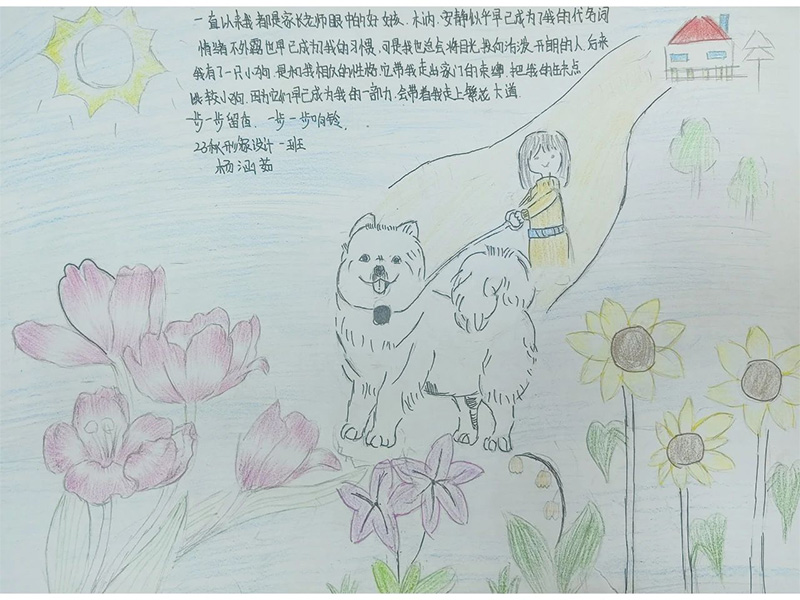 一直以来我都是家长老师眼中的好女孩.木讷.安静似乎早已成为了我的代名词
情绪不外露也早已成为了我的习惯.可是我也总会将目光.投向活泼.开朗的人.后来
我有了一只小狗.是和我相仿的性格.它带我走出家门的束缚.把我的缺点
比较小狗.因为它们早已成为我的一部力.会带着我走上繁花大道.
一步一步留痕.一步一步响铃.
23秋形象设计一班
杨涵茹